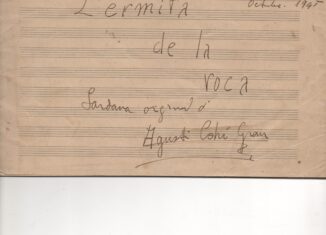 Octubre. 1945
L'ermita
de la
roca
Sardana original d'
Agustí Cohí Grau